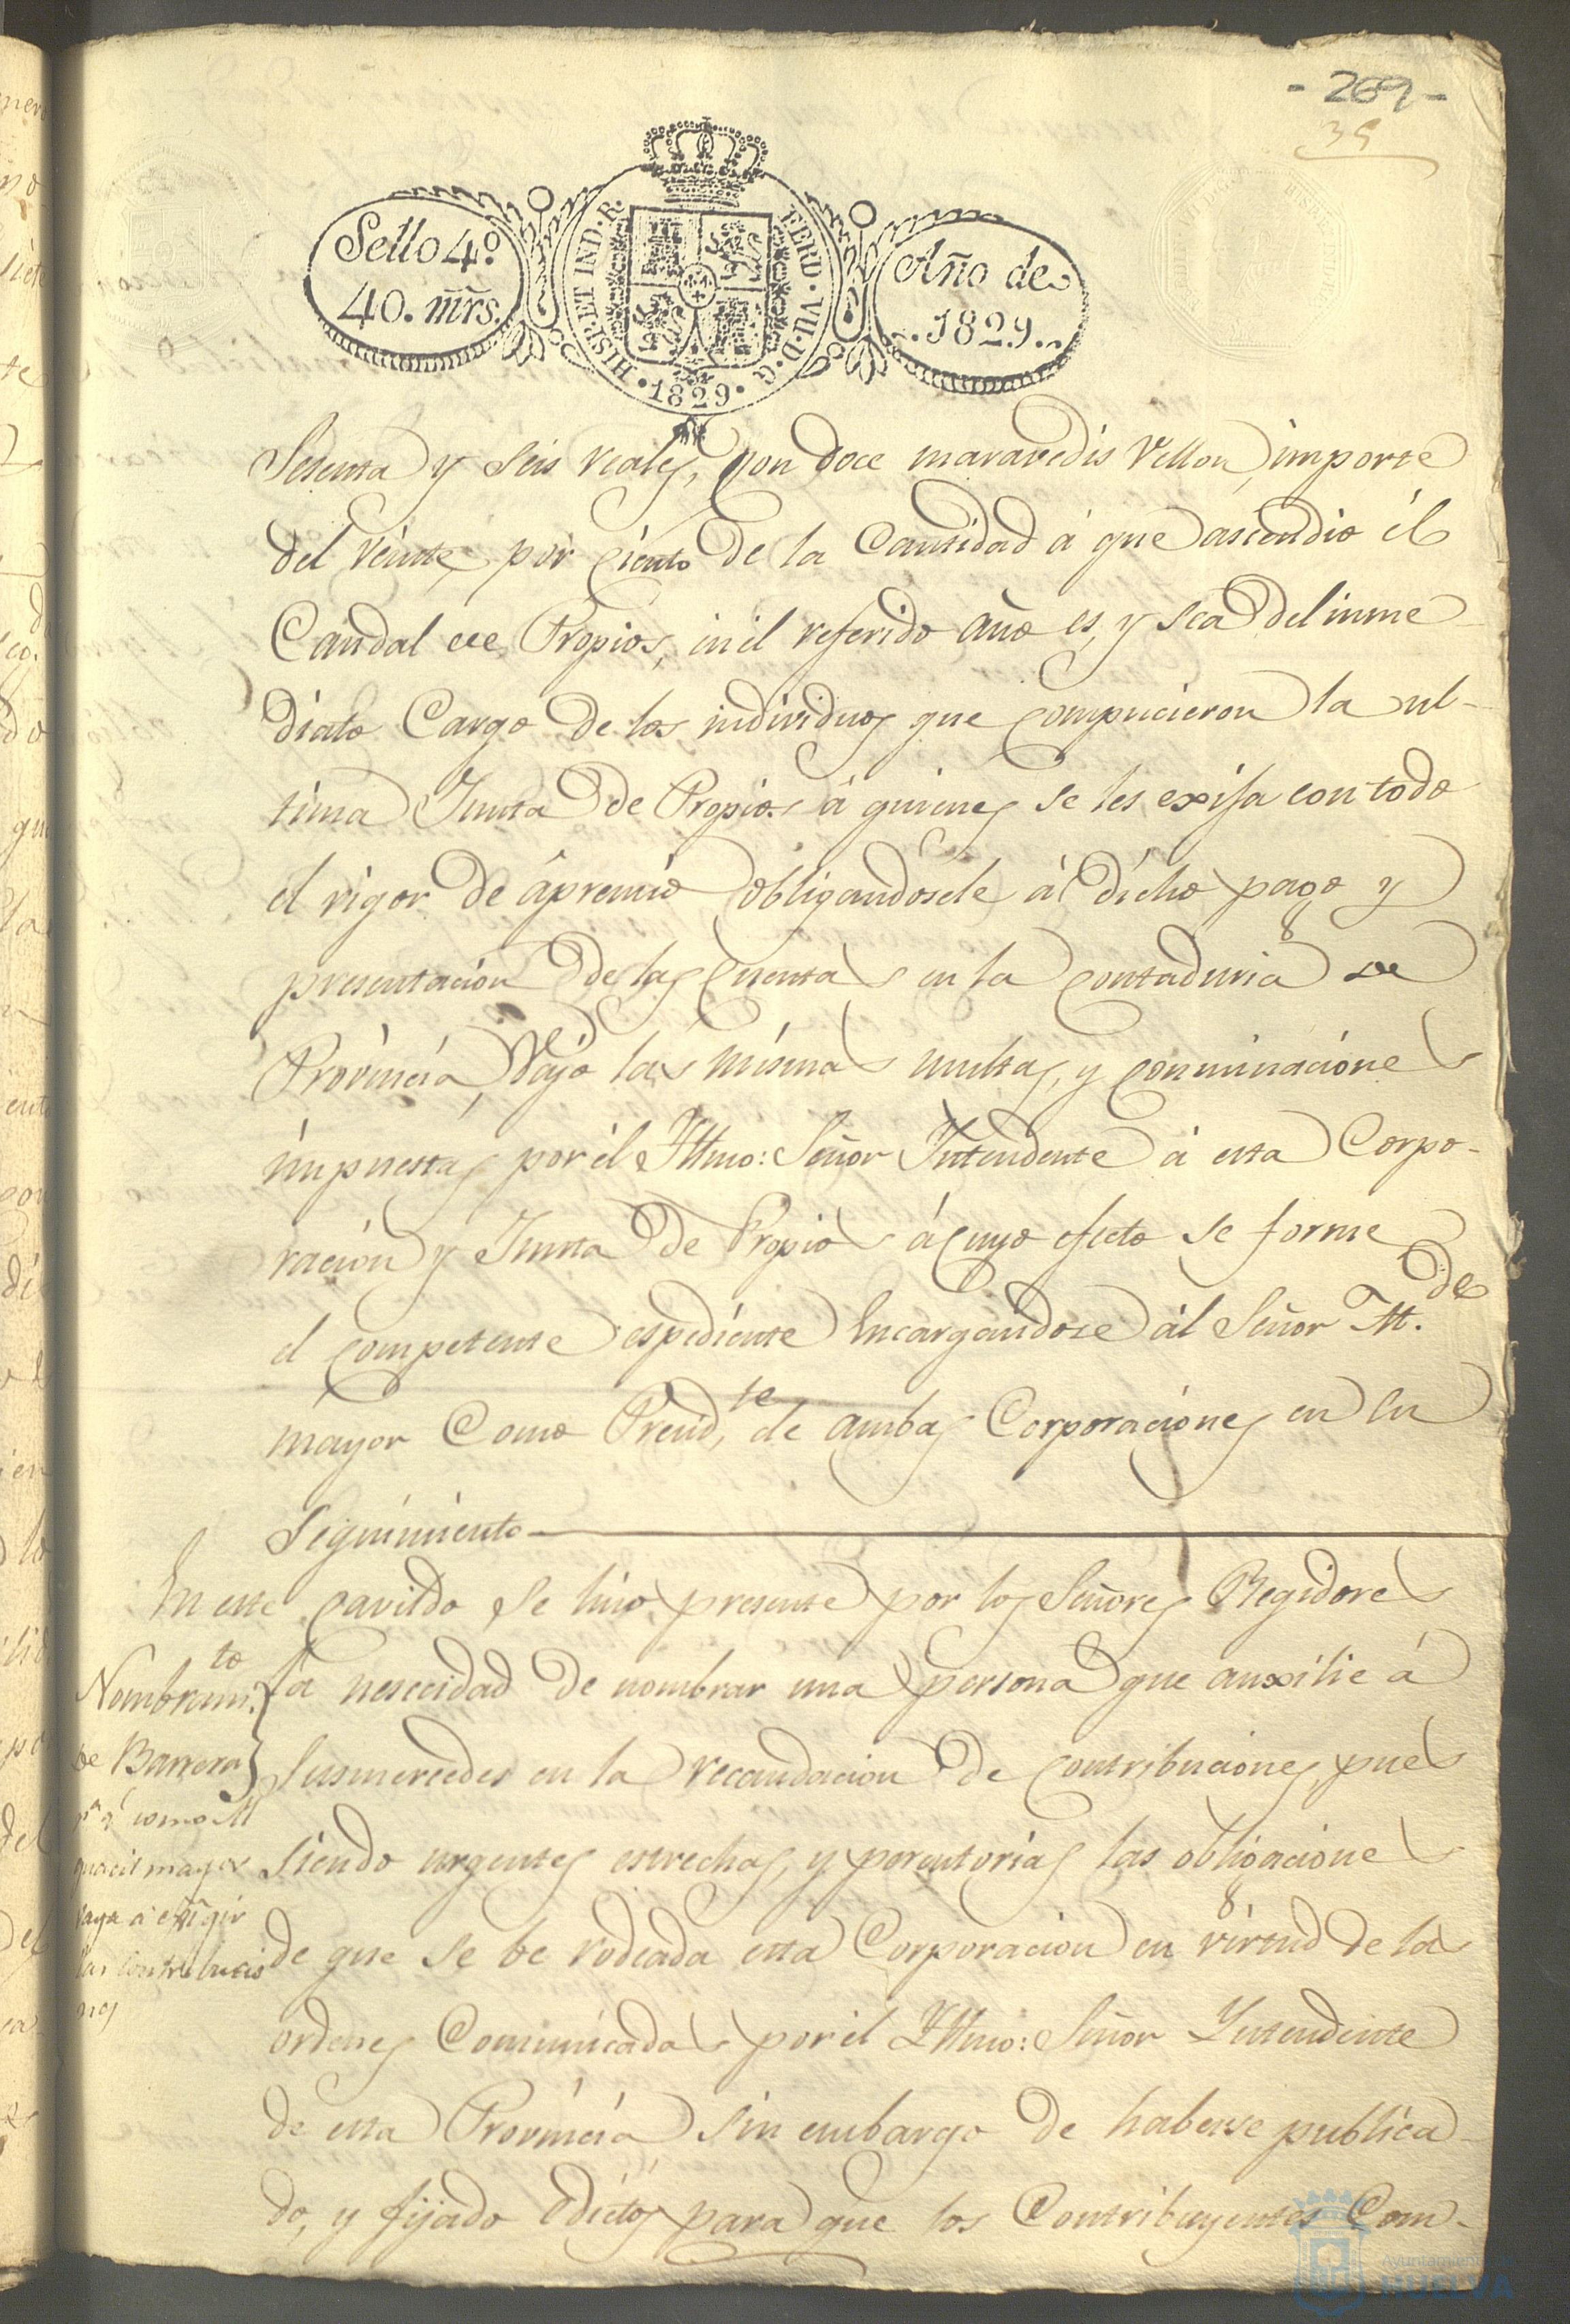 - 269 -
39
Sello 4º
40. mr̃s.
HISP. ET IND. R.
FERD. VII. D. G.
• 1829 •
Año de
1829
Sesenta y seis reales, con doce maravedis Vellon, importe
del veinte por ciento de la Cantidad á que ascendio él
Caudal de Propios, en él referido año es, y sea del inme
diato Cargo de los individuos que compucieron la ul-
tima Junta de Propios á quienes se les exija con todo
el rigor de ápremio obligandosele ál dicho pago y
presentacion de las Cuentas en la contaduria de
Provincia, vajo las mismas multas, y conminaciones
impuestas por él Yltmo: Señor Yntendente á esta Corpo-
racion y Junta de Propios á cuyo efecto se forme
el competente espediente Encargandose ál Señor Al.de
mayor Como Presid,te de ambas Corporaciones en su
Seguimiento
En este cavildo se hiso presente por los Señores Regidores
la nesecidad de nombrar una persona que auxilie á
susmercedes en la recaudacion de contribuciones, pues
siendo urgentes estrechas, y perentorias las obligaciones
de que se be rodeada esta Corporacion en virtud de las
ordenes Comunicadas por él Yltmo: Señor Yntendente
de esta Provincia sin embargo de haberse publica-
do, y fijado Edictos para que los Contribuyentes Com-
Nombram.to
de Barrera
pª qe como Al
guacil mayor
vaya á exigir
las contribucio
nes
Ayuntamiento de
HUELVA